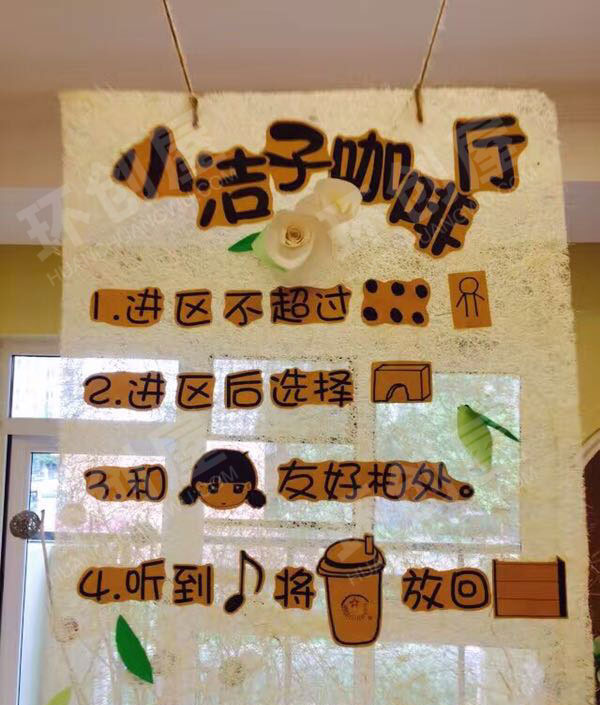 小洁子咖啡厅
1.进区不超过
2.进区后选择
3.和友好相处。
4.听到将放回